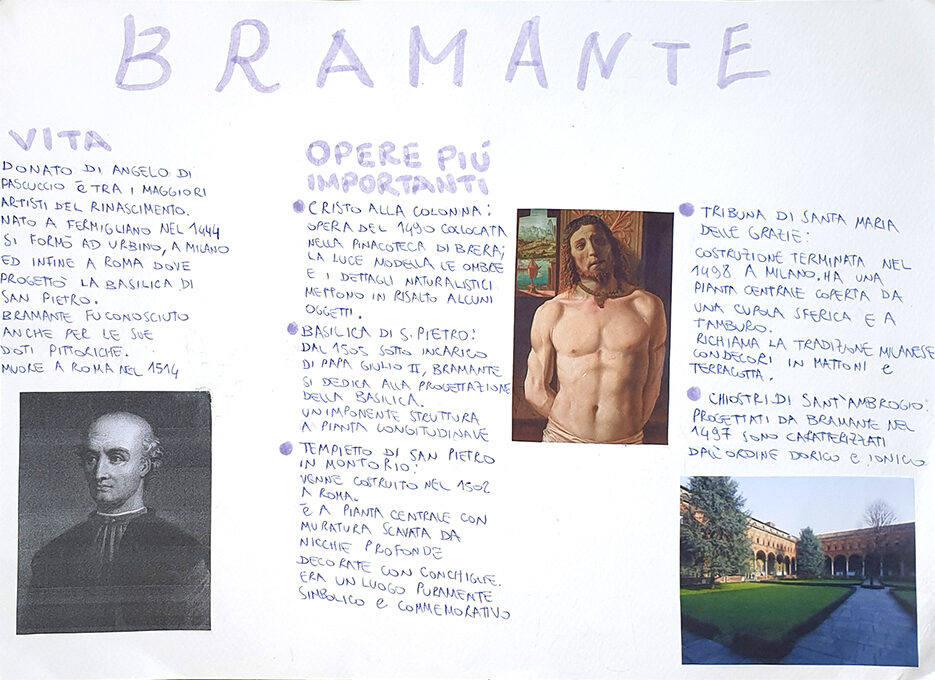 BRAMANTE
VITA
DONATO DI ANGELO DI
PASCUCCIO È TRA I MAGGIORI
ARTISTI DEL RINASCIMENTO.
NATO A FERMIGLIANO NEL 1444
SI FORMÒ AD URBINO, A MILANO
ED INFINE A ROMA DOVE
PROGETTÒ LA BASILICA DI
SAN PIETRO.
BRAMANTE FU CONOSCIUTO
ANCHE PER LE SUE
DOTI PITTORICHE.
MUORE A ROMA NEL 1514
OPERE PIÚ
IMPORTANTI
CRISTO ALLA COLONNA:
OPERA DEL 1490 COLLOCATA
NELLA PINACOTECA DI BRERA;
LA LUCE MODELLA LE OMBRE
E I DETTAGLI NATURALISTICI
METTONO IN RISALTO ALCUNI
OGGETTI.
BASILICA DI S. PIETRO:
DAL 1505 SOTTO INCARICO
DI PAPA GIULIO II, BRAMANTE
SI DEDICA ALLA PROGETTAZIONE
DELLA BASILICA.
UN IMPONENTE STRUTTURA
A PIANTA LONGITUDINALE
TEMPIETTO DI SAN PIETRO
IN MONTORIO:
VENNE COSTRUITO NEL 1502
A ROMA.
È A PIANTA CENTRALE CON
MURATURA SCAVATA DA
NICCHIE PROFONDE
DECORATE CON CONCHIGLIE.
ERA UN LUOGO PURAMENTE
SIMBOLICO E COMMEMORATIVO
TRIBUNA DI SANTA MARIA
DELLE GRAZIE:
COSTRUZIONE TERMINATA NEL
1498 A MILANO. HA UNA
PIANTA CENTRALE COPERTA DA
UNA CUPOLA SFERICA E A
TAMBURO.
RICHIAMA LA TRADIZIONE MILANESE
CON DECORI IN MATTONI E
TERRACOTTA.
CHIOSTRI DI SANT'AMBROGIO:
PROGETTATI DA BRAMANTE NEL
1497 SONO CARATTERIZZATI
DALL'ORDINE DORICO E IONICO